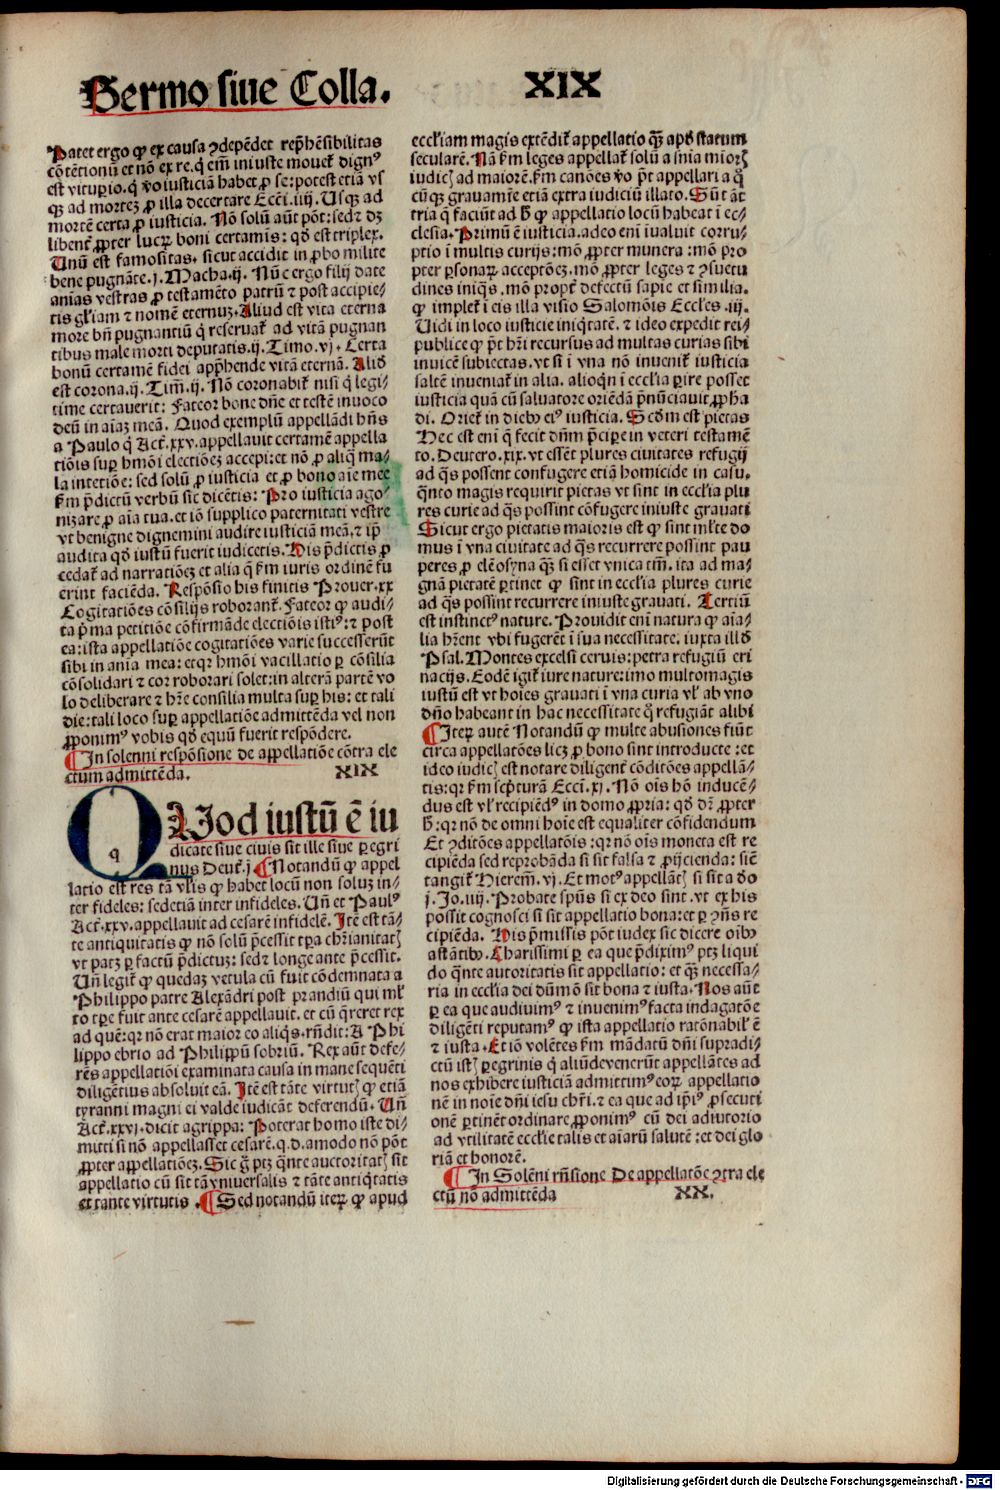 Sermo siue Colla.
XIX
Patet ergo ꝙ ex causa ꝯdepēdet rep̄hēsibilitas
cōtētionū et nō ex re. q̇ em̄ iniuste mouet͛ dignꝰ
est vitupio. q̇ v̓o iusticiā habet ꝓ se: potest etiā vs
qꝫ ad mortez ꝓ illa decertare Ecci. iiij. Usqꝫ ad
mortē certa ꝓ iusticia. Nō solū aūt pōt: sedꝛ dꝫ
libent͛ ꝓpter lucꝝ boni certamīs: qd̓ est triplex.
Unū est famositas. sicut accidit in ꝓbo milite
bene pugnāte. j. Macha. ij. Nūc ergo filij date
anīas vestras ꝓ testamēto patrū ⁊ post accipie⸗
tis gl̓iam ⁊ nomē eternuꝫ. Aliud est vita eterna
more bn̄ pugnantiū q̇ reseruat͛ ad vitā pugnan
tibus male morti deputatis. ij. Timo. vj. Certa
bonū certamē fidei app̄hende vitā eternā. Aliḋ
est corona. ij. Tim̄. ij. Nō coronabit͛ nisi q̇ legi⸗
time certauerit: Fateor bone dn̄e et testē inuoco
deū in aīaꝫ meā. Quod exemplū appellādi hn̄s
a Paulo q̇ Act. xxv. appellauit certamē appella
tiōis suꝑ hmōi electiōeꝫ accepi: et nō ꝓ aliq̇ ma⸗
la intētiōe: sed solū ꝓ iusticia et ꝓ bono aīe mee
ẜm p̄dictū verbū sic dicētis: Pro iusticia ago⸗
nizare ꝓ aīa tua. et iō supplico paternitati vestre
vt benigne dignemini audire iusticiā meā. ⁊ ip̄
audita qd̓ iustū fuerit iudicetis. His p̄dictis ꝓ
cedat͛ ad narratiōeꝫ et alia q̄ ẜm iuris ordinē fu
erint faciēda. Respōsio his finitis Prouer. xx
Cogitatiōes cōsilijs roborant͛. Fateor ꝙ audi⸗
ta p̄ma petitiōe cōfirmāde electiōis istiꝰ: ⁊ post
ea: ista appellatiōe cogitatiōes varie successerūt
sibi in anīa mea: etqꝛ hmōi vacillatio ꝑ cōsilia
cōsolidari ⁊ cor roborari solet: in alterā partē vo
lo deliberare ⁊ hr̄e consilia multa suꝑ his: et tali
die: tali loco suꝑ appellatiōe admittēda vel non
ꝓponimꝰ vobis qd̓ equū fuerit respōdere.
¶In solenni respōsione de appellatiōe cōtra ele
ctum admittēda. XIX
QUod iustū ē iu
q
dicate siue ciuis sit ille siue ꝑegri
nus Deut͛. j ¶Notandū ꝙ appel
latio est res tā vl̓is ꝙ habet locū non soluꝫ in⸗
ter fideles: sedetiā inter infideles. Un̄ et Paulꝰ
Act͛. xxv. appellauit ad cesarē infidelē. Itē est tā⸗
te antiquitatis ꝙ nō solū p̄cessit tꝑa chr̄ianitatꝭ
vt patꝫ ꝑ factū p̄dictuꝫ: sedꝛ longe ante p̄cessit.
Un̄ legit͛ ꝙ quedaꝫ vetula cū fuit cōdemnata a
Philippo patre Alexādri post prandiū qui ml̓
to tꝑe fuit ante cesarē appellauit. et cū q̄reret rex
ad quē: qꝛ nō erat maior eo aliq̇s. rn̄dit: A Phi
lippo ebrio ad Philippū sobriū. Rex aūt defe⸗
rēs appellatiōi examinata causa in mane sequēti
diligētius absoluit eā. Itē est tāte virtutꝭ ꝙ etiā
tyranni magni ei valde iudicāt deferendū. Un̄
Act͛. xxvj. dicit agrippa: Poterat homo iste di⸗
mitti si nō appellasset cesarē. q. d. amodo nō pōt
ꝓpter appellatiōeꝫ. Sic g̊ ptꝫ q̄nte auctoritatꝭ sit
appellatio cū sit tā vniuersalis ⁊ tāte antiq̇tatis
et tante virtutis. ¶Sed notandū iteꝝ ꝙ apud
eccl̓iam magis extēdit͛ appellatio qꝫ apḋ statum
secularē. Nā ẜm leges appellat͛ solū a sn̄ia miorꝭ
iudicꝭ ad maiorē. ẜm canōes v̓o p̄t appellari a q̊
cūqꝫ grauamīe etiā extra iudiciū illato. Sūt āt
tria q̄ faciūt ad ḣ ꝙ appellatio locū habeat ī ec⸗
clesia. Primū ē iusticia. adeo enī īualuit corru⸗
ptio ī multis curijs: mō ꝓpter munera: mō pro
pter ꝑsonaꝝ acceptōeꝫ. mō ꝓpter leges ⁊ ꝯsuetu
dines iniq̇s. mō propt͛ defectū sapīe et similia.
ꝙ implet͛ ī eis illa visio Salomōis Eccl̓es. iij.
Uidi in loco iusticie iniq̇tatē. ⁊ ideo expedit rei⸗
publice ꝙ p̄t hr̄i recursus ad multas curias sibi
inuicē subiectas. vt si ī vna nō inuenit͛ iusticia
saltē inueniat͛ in alia. alioq̇n ī eccl̓ia ꝑire posset
iusticia quā cū saluatore oriēdā p̄nūciauit ꝓpha
di. Oriet͛ in diebꝰ eiꝰ iusticia. Scḋm est pietas
Hec est enī q̄ fecit dn̄m p̄cipe in veteri testamē
to. Deutero. xix. vt essēt plures ciuitates refugij
ad q̄s possent confugere etiā homicide in casu.
q̄nto magis requirit pietas vt sint in eccl̓ia plu
res curie ad q̄s possint cōfugere iniuste grauati
Sicut ergo pietatis maioris est ꝙ sint ml̓te do
mus ī vna ciuitate ad q̄s recurrere possint pau
peres ꝓ elēosyna qꝫ si esset vnica tm̄. ita ad ma⸗
gnā pietatē ꝑtinet ꝙ sint in eccl̓ia plures curie
ad q̄s possint recurrere iniuste grauati. Tertiū
est instinctꝰ nature. Prouidit enī natura ꝙ aīa⸗
lia hr̄ent vbi fugerēt ī sua necessitate. iuxta illḋ
Psal. Montes excelsi ceruis: petra refugiū eri
nacijs. Eodē igit͛ iure nature: imo multomagis
iustū est vt hoīes grauati ī vna curia vl̓ ab vno
dn̄o habeant in hac necessitate q̊ refugiāt alibi
¶Iteꝝ autē Notandū ꝙ multe abusiones fiūt
circa appellatōes licꝫ ꝓ bono sint introducte: et
ideo iudicꝭ est notare diligent͛ cōditōes appellā⸗
tis: qꝛ ẜm sc̓pturā Ecci. xj. Nō oīs hō inducē⸗
dus est vl̓ recipiēdꝰ in domo ꝓpria: qd̓ dr̄ ꝓpter
ḣ: qꝛ nō de omni hoīe est equaliter cōfidendum
Et ꝯditōes appellatōis: qꝛ nō oīs moneta est re
cipiēda sed reprobāda si sit falsa ⁊ ꝓijcienda: siē
tangit͛ Hierem̄. vj. Et motꝰ appellātꝭ si sit a do
j. Jo. iiij. Probate spūs si ex deo sint. vt ex his
possit cognosci si sit appellatio bona: et ꝑ ꝯn̄s re
cipiēda. His p̄missis pōt iudex sic dicere oībꝰ
astātibꝰ. Charissimi ꝑ ea que p̄diximꝰ ptꝫ liqui
do q̄nte autoritatis sit appellatio: et qꝫ necessa⸗
ria in eccl̓ia dei dūmō sit bona ⁊ iusta. Nos aūt
ꝑ ea que audiuimꝰ ⁊ inuenimꝰ facta indagatōe
diligēti reputamꝰ ꝙ ista appellatio ratōnabil̓ ē
⁊ iusta. Et iō volētes ẜm mādatū dn̄i supradi⸗
ctū istꝭ ꝑegrinis q̇ aliūdevenerūt appellātes ad
nos exhibere iusticiā admittimꝰ eoꝝ appellatio
nē in noīe dn̄i iesu chr̄i. ⁊ ea que ad ip̄iꝰ ꝓsecuti
onē ꝑtinēt ordinare ꝓponimꝰ cū dei adiutorio
ad vtilitatē eccl̓ie talis et aīarū salutē: et dei glo
riā et honorē.
¶In Solēni rn̄sione De appellatōe ꝯtra ele
ctū nō admittēda XX.
Digitalisierung gefördert durch die Deutsche Forschungsgemeinschaft - DFG